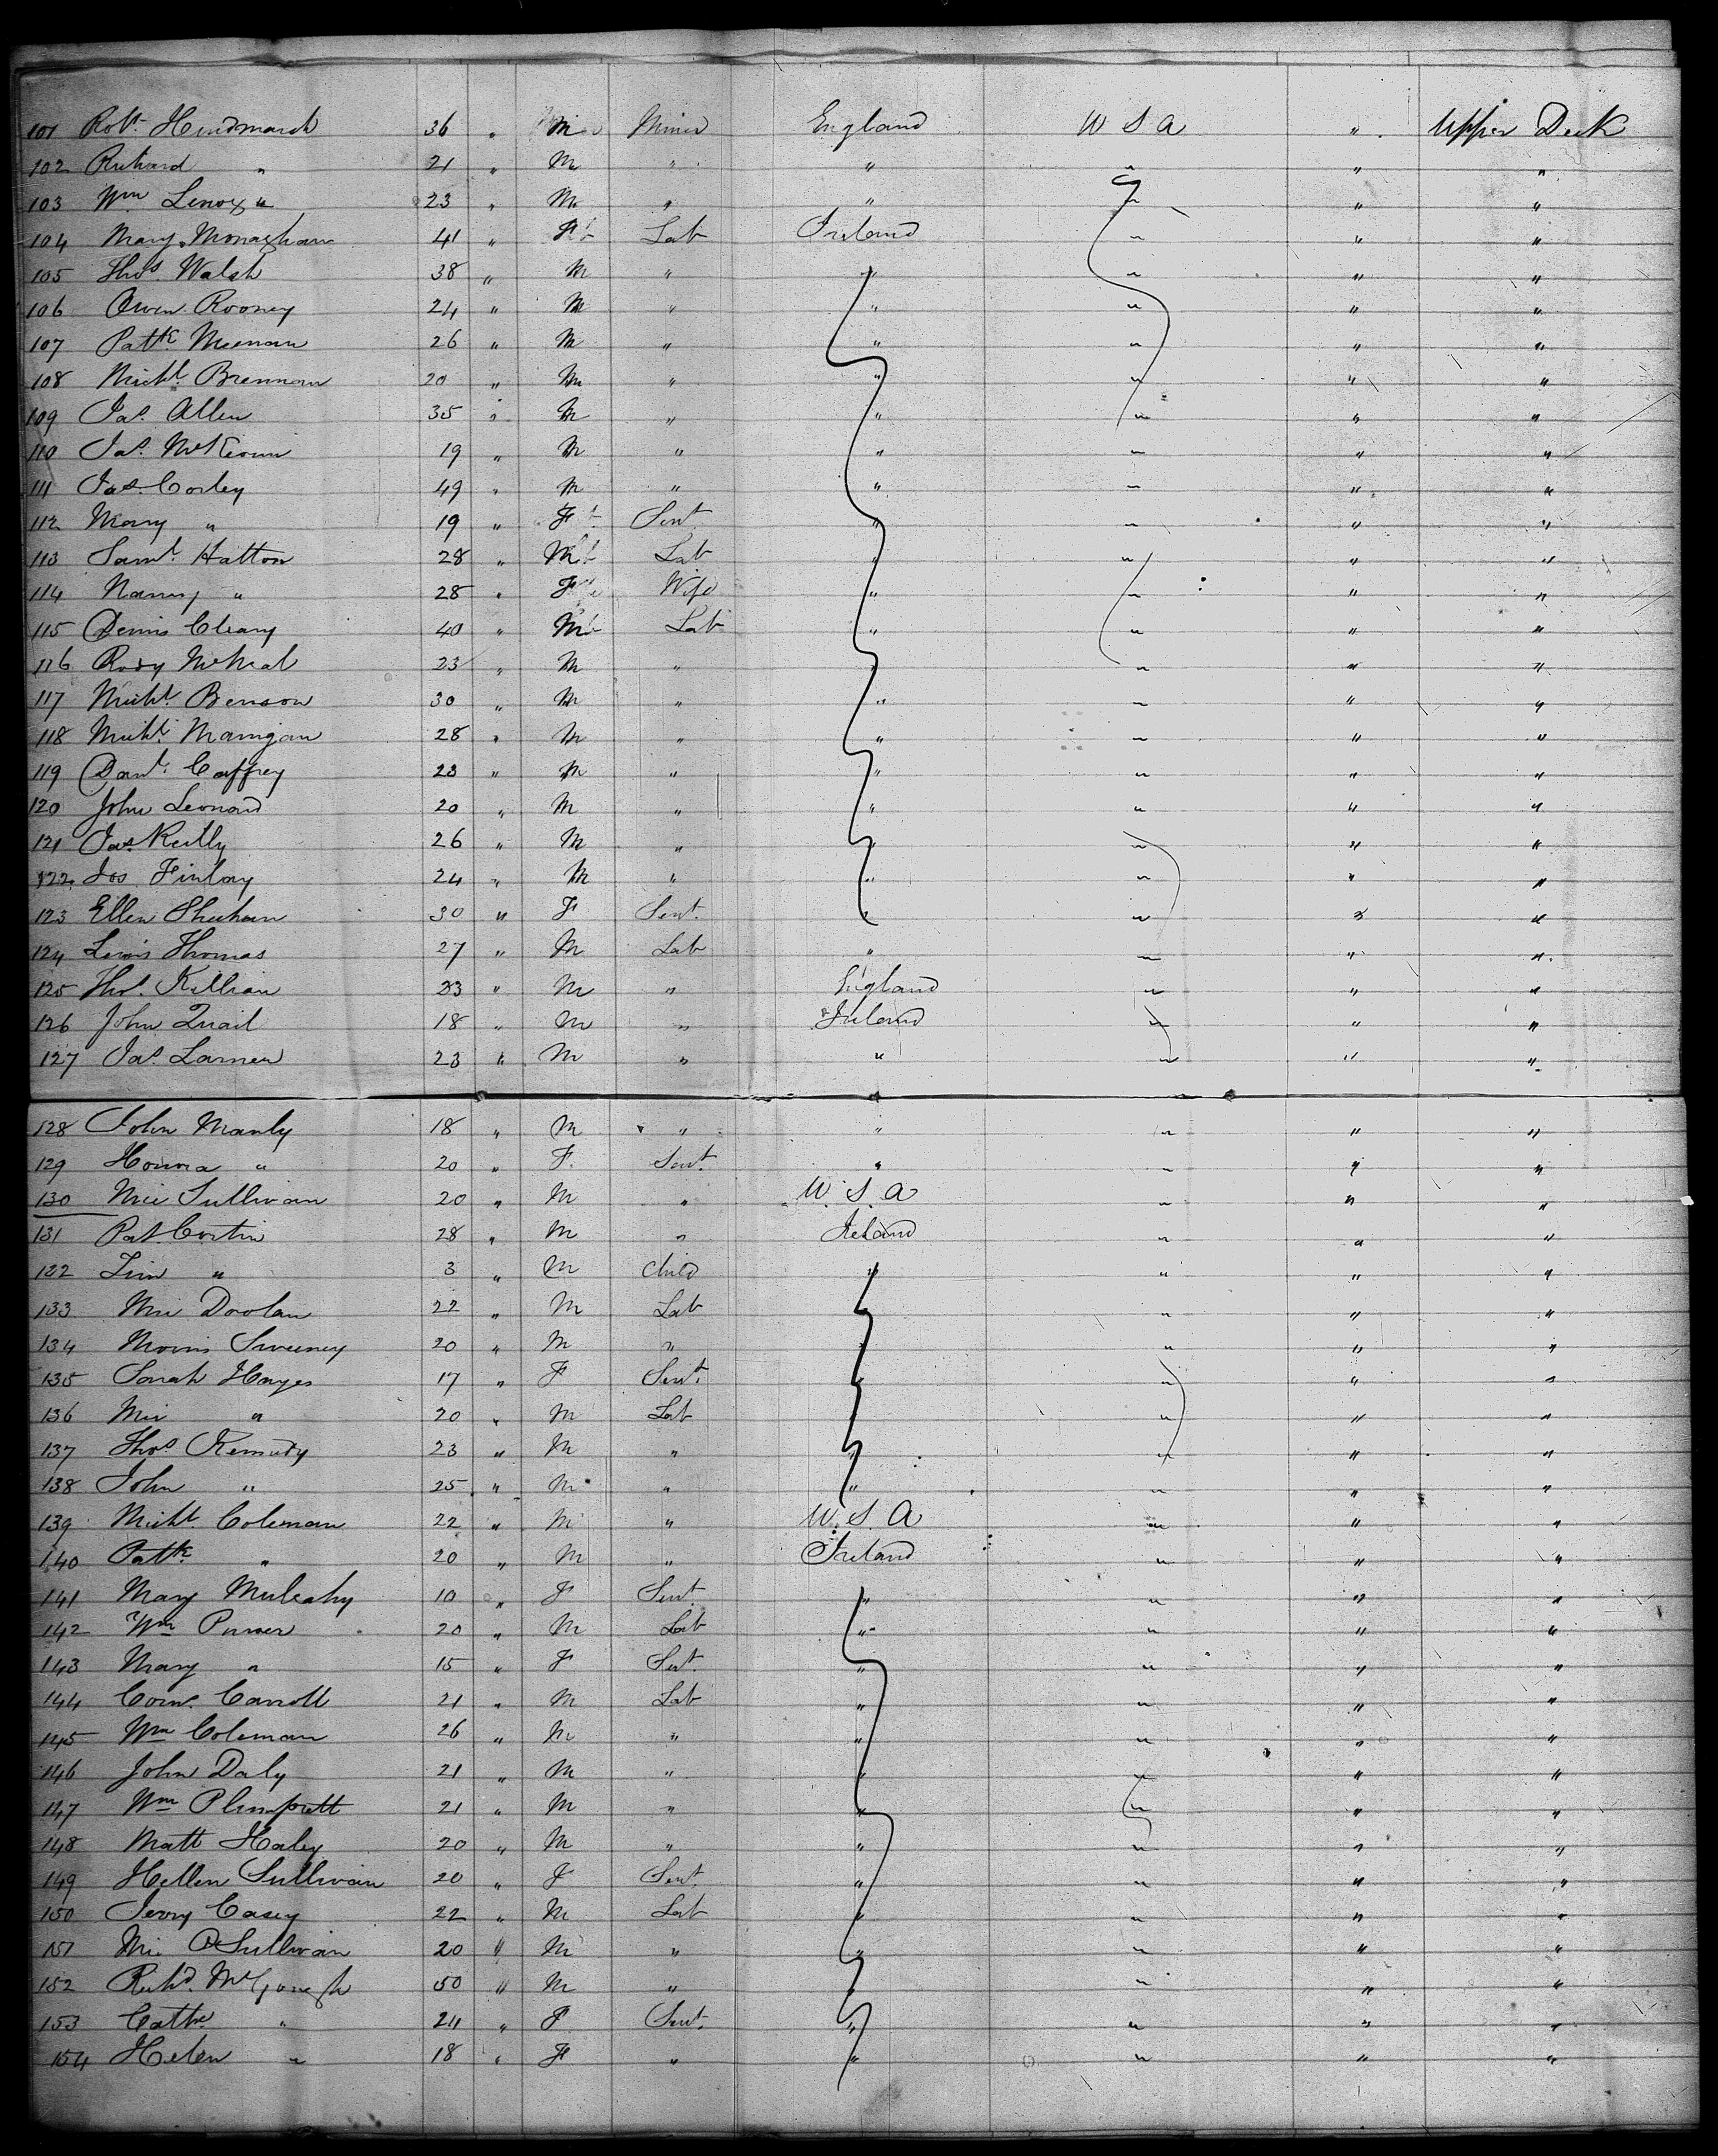 101 Robt. Hindmarsh 36 " M Miner England U S A " Upper Deck
102 Richard " 21 " M " " " " "
103 Wm Lenox " 23 " M " " " " "
104 Mary Monaghan 41 " F Lab Ireland " " "
105 Thos. Walsh 38 " M " " " " "
106 Owen Rooney 24 " M " " " " "
107 Patk. Meenan 26 " M " " " " "
108 Michl. Brennan 20 " M " " " " "
109 Jas. Allen 35 " M " " " " "
110 Jas. McKeown 19 " M " " " " "
111 Jas. Corley 49 " M " " " " "
112 Mary " 19 " F Sert. " " " "
113 Saml. Hatton 28 " M Lab " " " "
114 Nancy " 28 " F Wife " " " "
115 Denis Cleary 40 " M Lab " " " "
116 Rody McNeal 23 " M " " " " "
117 Michl. Benson 30 " M " " " " "
118 Michl. Mannigan 28 " M " " " " "
119 Danl. Caffrey 23 " M " " " " "
120 John Leonard 20 " M " " " " "
121 Jas. Reilly 26 " M " " " " "
122 Jos Finlay 24 " M " " " " "
123 Ellen Sheehan 30 " F Sert. " " " "
124 Lewis Thomas 27 " M Lab " " " "
125 Thos. Killian 23 " M " England " " "
126 John Quail 18 " M " Ireland " " "
127 Jas. Larnen 23 " M " " " " "
128 John Manly 18 " M " " " " "
129 Honora " 20 " F. Sert. " " " "
130 Mic Sullivan 20 " M " U. S. A " "
131 Pat Cortin 28 " M " Ireland " " "
122 Tim " 3 " M Child " " " "
133 Mic Doolan 22 " M Lab " " " "
134 Morris Sweeney 20 " M " " " " "
135 Sarah Hayes 17 " F Sert. " " " "
136 Mic " 20 " M Lab " " " "
137 Thos. Kennedy 23 " M " " " " "
138 John " 25 " M " " " " "
139 Michl. Coleman 22 " M " U. S. A " " "
140 Patk. " 20 " M " Ireland " " "
141 Mary Mulcahy 10 " F Sert. " " " "
142 Wm 20 " M Lab " " " "
143 Mary " 15 " F Sert. " " " "
144 Corns. Carroll 21 " M Lab " " " "
145 Wm Coleman 26 " M " " " " "
146 John Daly 21 " M " " " " "
147 Wm Plimpett 21 " M " " " " "
148 Matt Haley 20 " M " " " " "
149 Hellen Sullivan 20 " F Sert. " " " "
150 Jerry Casey 22 " M Lab " " " "
151 Mic OSullivan 20 " M " " " " "
152 Richd. 50 " M " " " " "
153 Cathe " 24 " F Sert. " " " "
154 Helen " 18 " F " " " " "